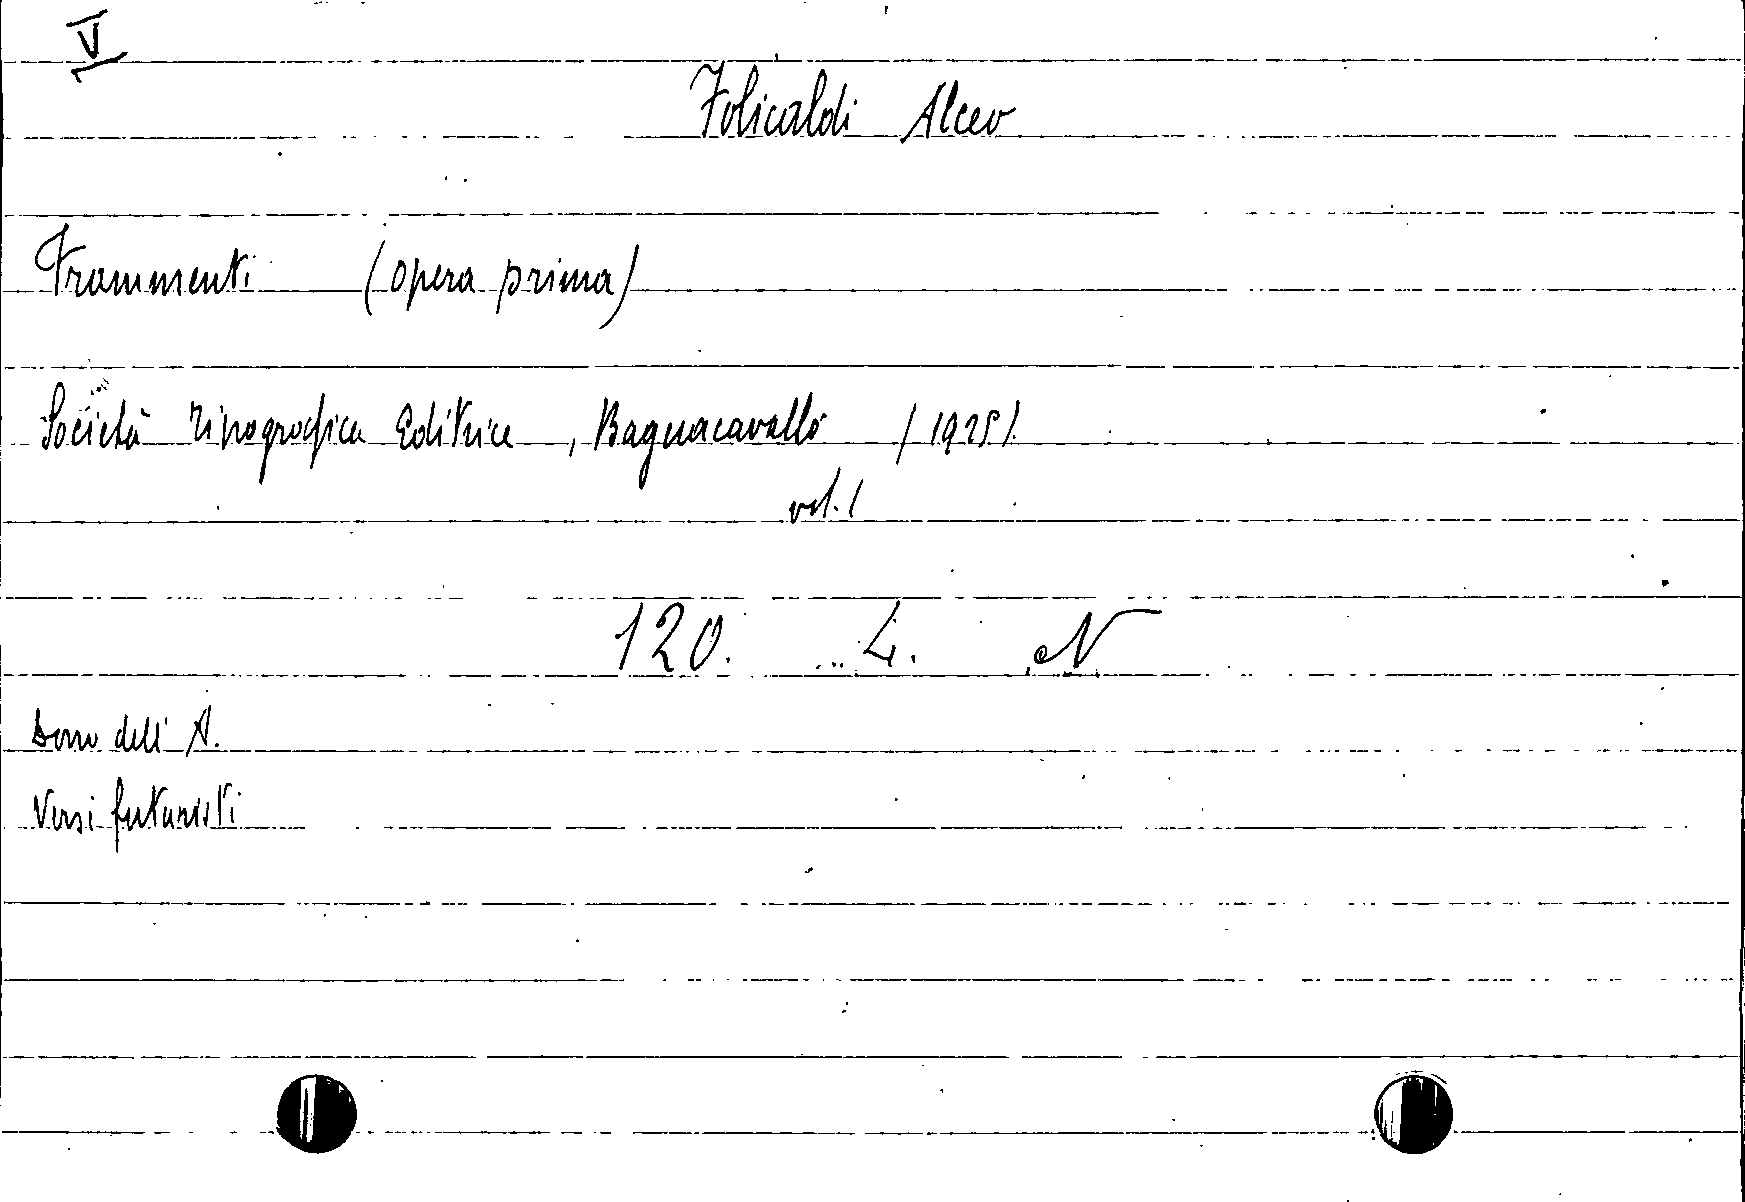 V
Folicaldi Alceo
Frammenti (opera prima)
Società Tipografica Editrice, Bagnacavallo /1925/
vol. 1
120. 4. N
Dono dell'A.
Versi futuristi